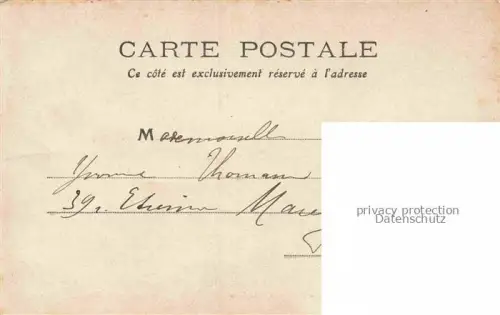 CARTE POSTALE
Ce côté est exclusivement réservé à l'adresse
Mademoiselle
Yvonne Thomann
39 r. Etienne Marc
privacy protection
Datenschutz